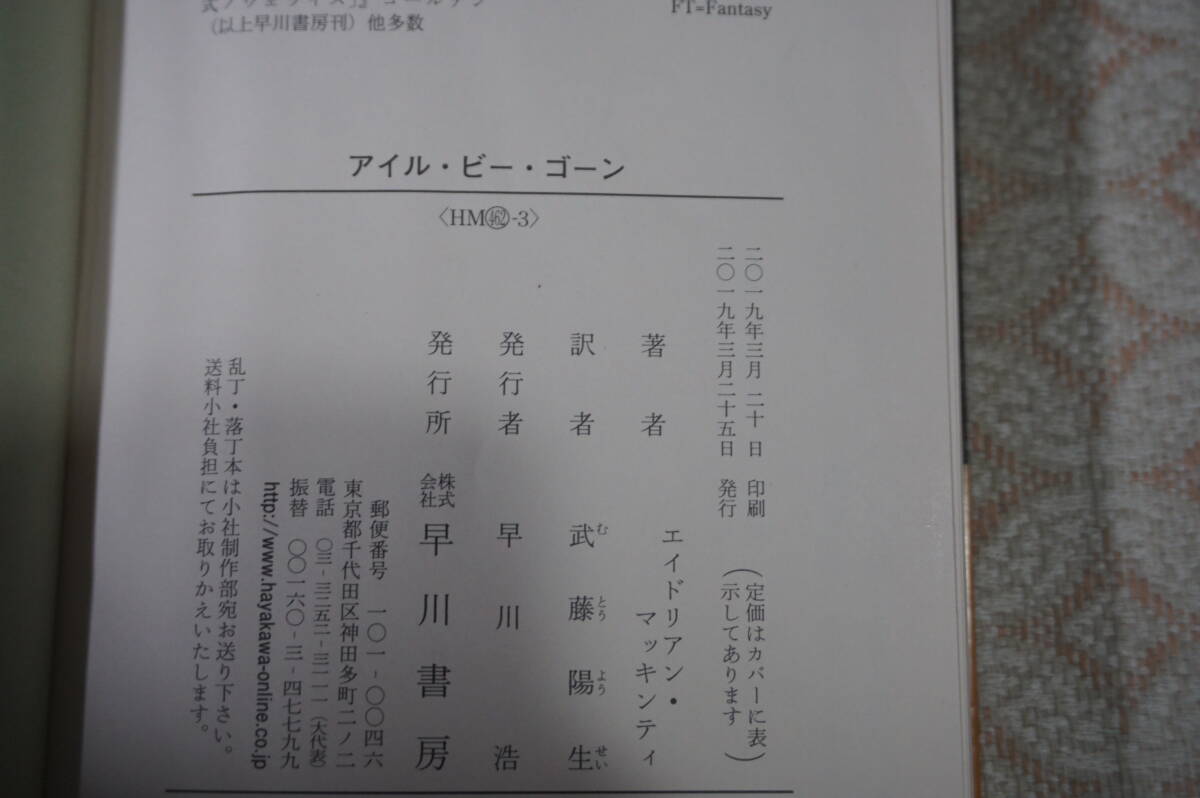 (以上早川書房刊)他多数
FT=Fantasy
アイル・ビー・ゴーン
〈HM㊻-3〉
二〇一九年三月二十日 印刷
二〇一九年三月二十五日 発行
(定価はカバーに表
示してあります)
著者 エイドリアン・
マッキンティ
訳者 武藤陽生
む とう よう せい
発行者 早川 浩
発行所 株式会社 早川書房
郵便番号 一〇一-〇〇四六
東京都千代田区神田多町二ノ二
電話 〇三-三二五二-三一一一(大代表)
振替 〇〇一六〇-三-四七七九九
http://www.hayakawa-online.co.jp
乱丁・落丁本は小社制作部宛お送り下さい。
送料小社負担にてお取りかえいたします。